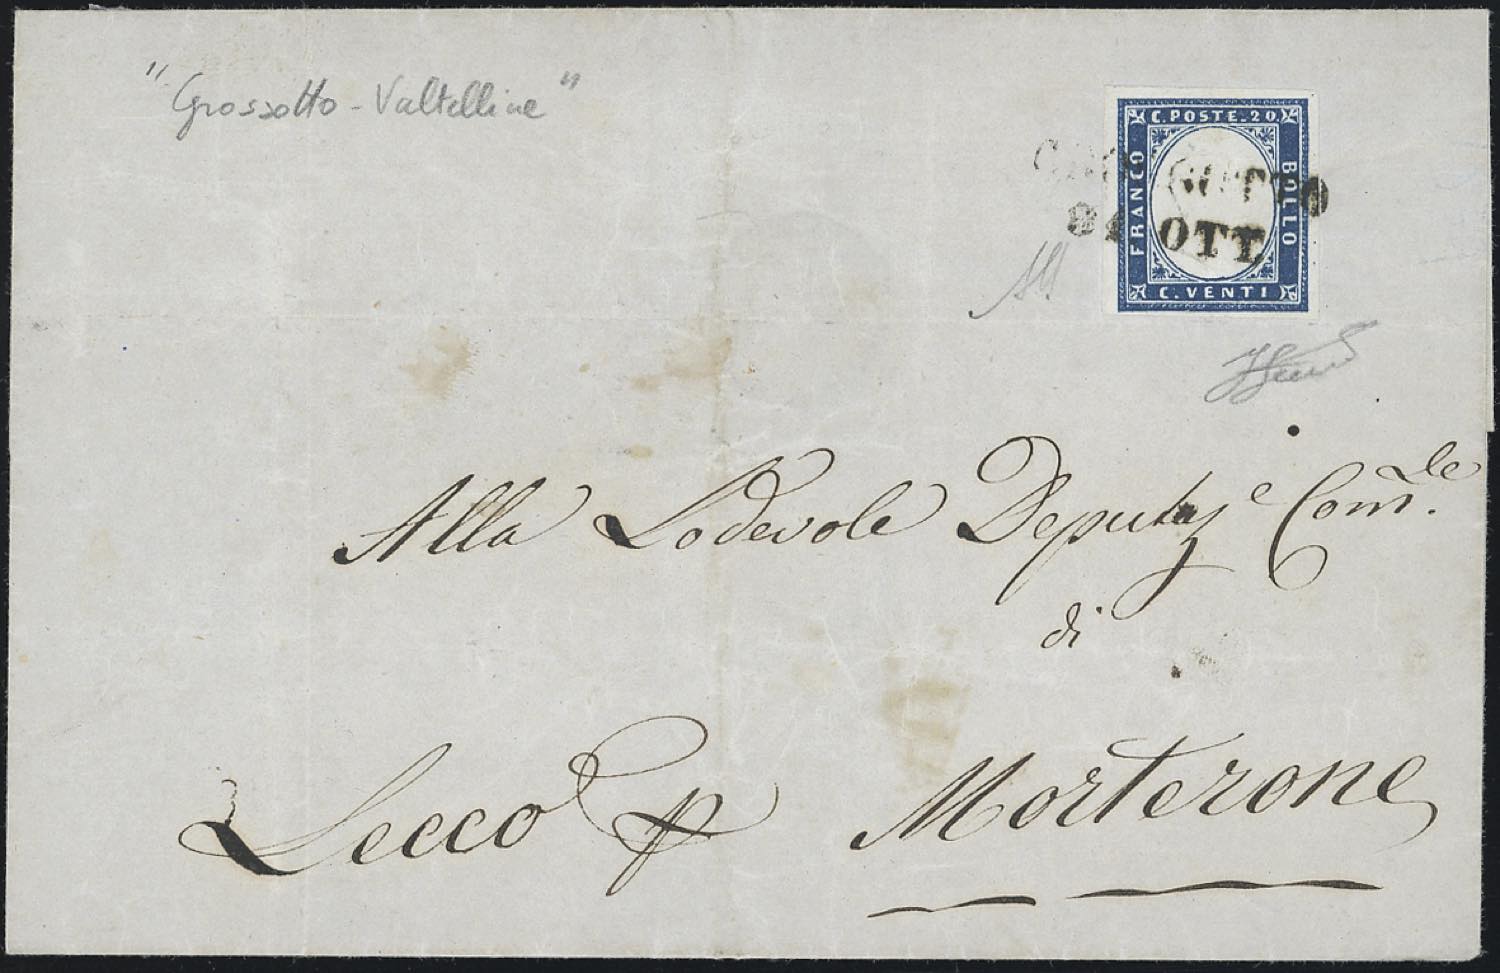 "Grossotto - Valtelline"
C. POSTE. 20.
FRANCO
BOLLO
C. VENTI
OTT.
Alla Lodevole Deputaz.e Com.le
di
Lecco p Morterone